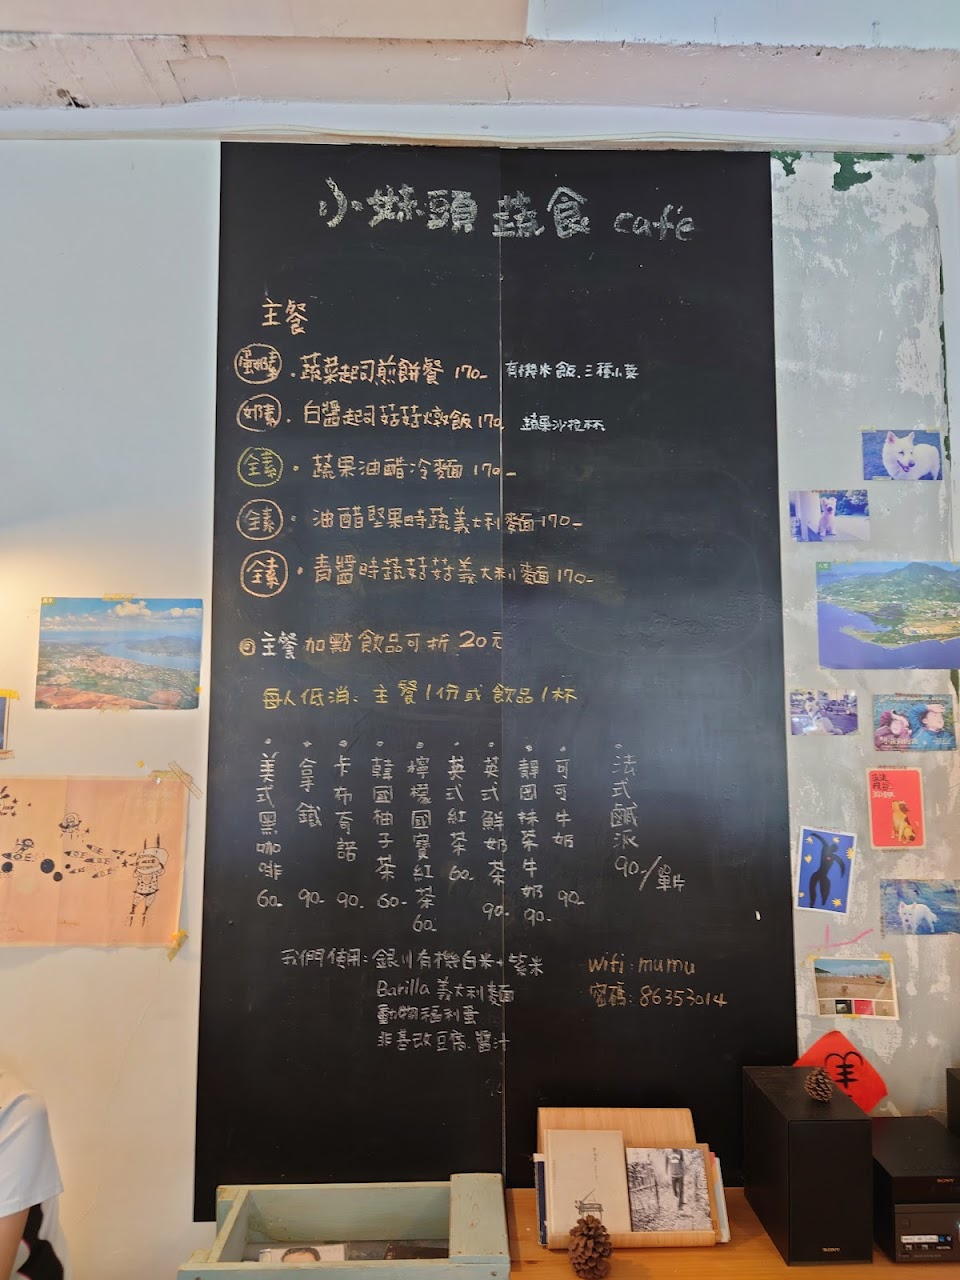 小㵖頭 蔬食 café
主餐
蛋奶素 . 蔬菜起司煎餅餐 170- 有機米飯.三種小菜
奶素 . 白醬起司菇菇燉飯 170 蔬果沙拉杯
全素 . 蔬果油醋冷麵 170-
全素 . 油醋堅果時蔬義大利麵 170-
全素 . 青醬時蔬菇菇義大利麵 170-
主餐 加點飲品可折 20元
每人低消: 主餐1份或飲品1杯
美式黑咖啡 60-
拿鐵 90-
卡布奇諾 90-
韓國柚子茶 60-
檸檬國寶紅茶 60-
英式紅茶 60-
英式鮮奶茶 90-
靜岡抹茶牛奶 90-
可可牛奶 90-
法式鹹派 90/單片
我們使用: 銀川有機白米+紫米
Barilla 義大利麵
動物福利蛋
非基改豆腐.醬汁
wifi: mumu
密碼: 86353014
SONY
SONY